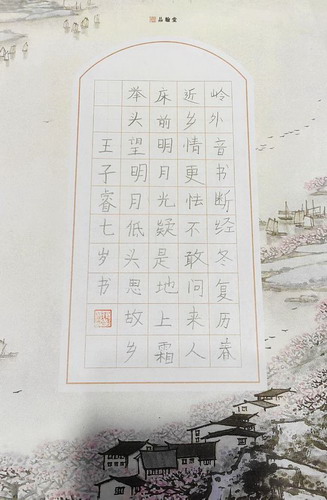 品翰堂
岭外音书断经冬复历春
近乡情更怯不敢问来人
床前明月光疑是地上霜
举头望明月低头思故乡
王子睿七岁书